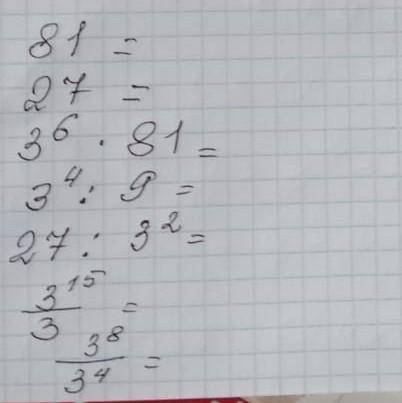 81 =
27 =
3⁶ · 81 =
3⁴ : 9 =
27 : 3² =
3¹⁵/3 =
3⁸/3⁴ =